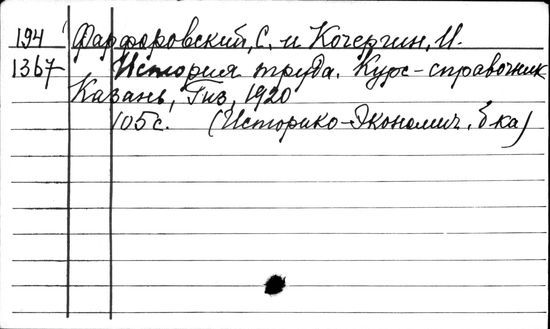 194 Фарфоровский, С. и Кочергин, И.
1367 История труда. Курс-справочник
Казань, Гиз, 1920
105с. (Историко-Экономич. б-ка)